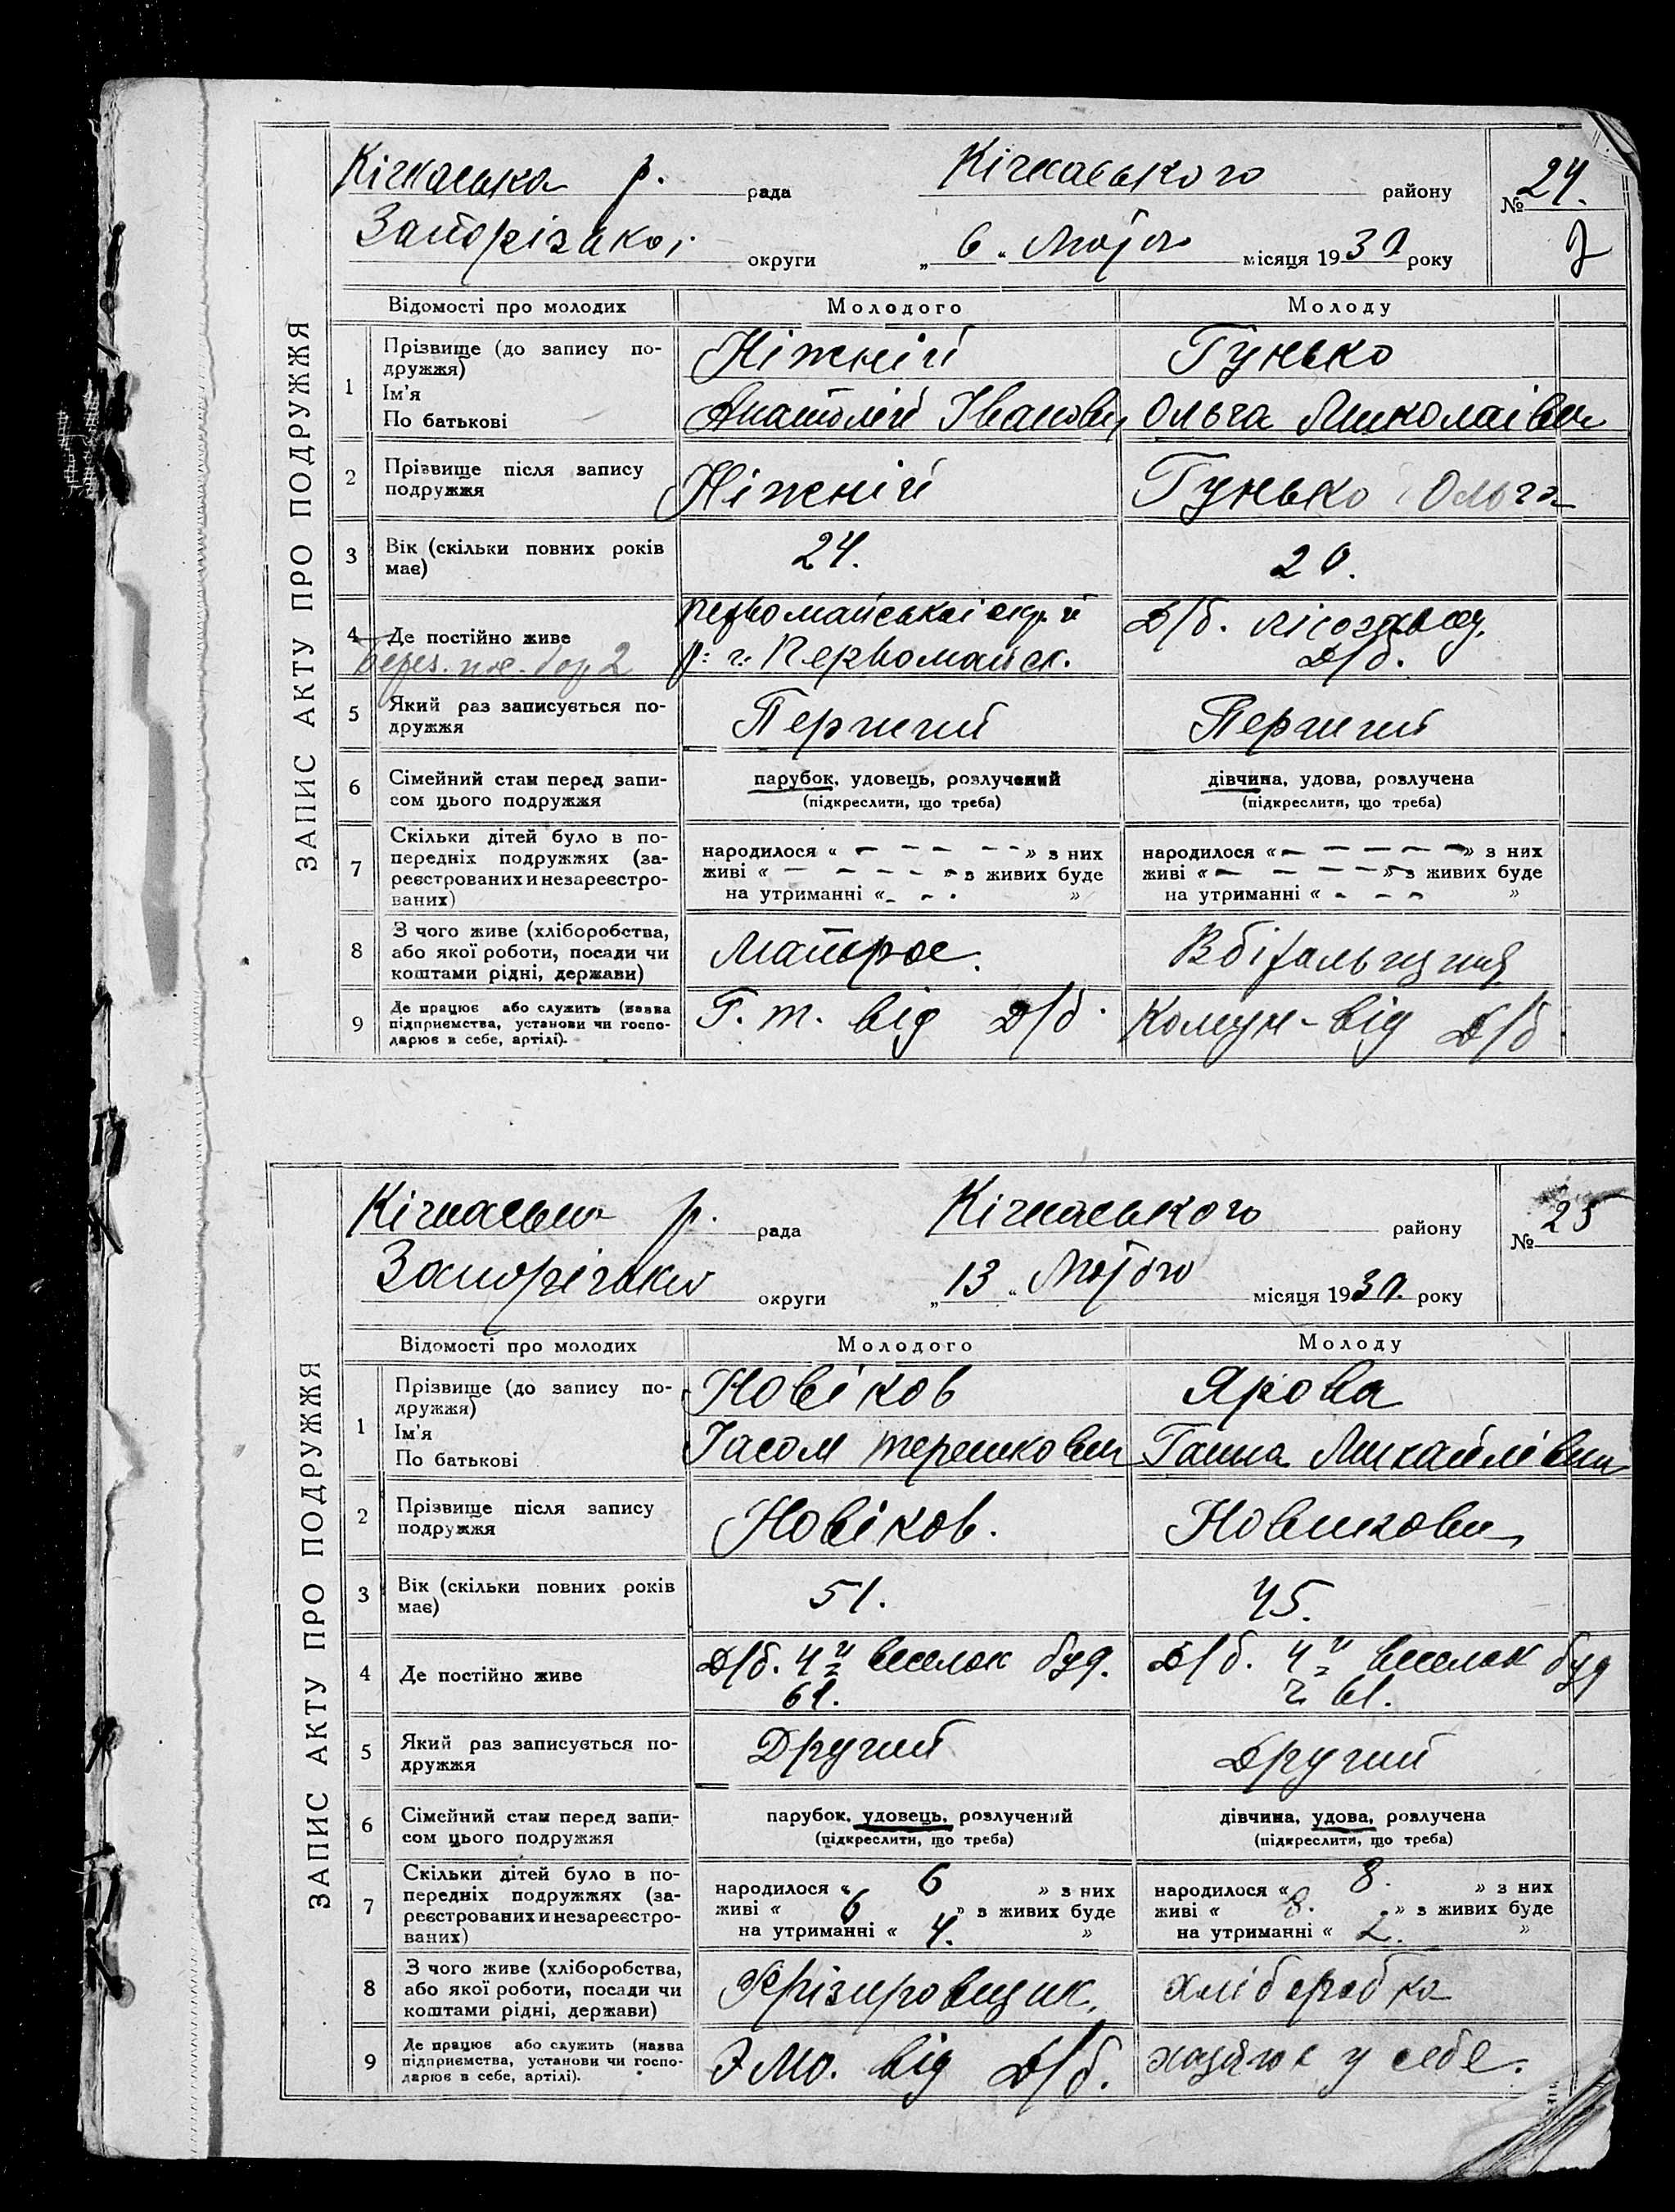 ЗАПИС АКТУ ПРО ПОДРУЖЖЯ
Кічкаська р. рада Кічкаського району № 24.
Запорізької округи „ 6 “ місяця 1930 року
Відомості про молодих Молодого Молоду
1 Прізвище (до запису подружжя) Ніжній Гунько
Ім'я
По батькові Анатолій Іванович Ольга Миколаівна
2 Прізвище після запису
подружжя Ніжній Гунько Ольга
3 Вік (скільки повних років
має) 24. 20.
4 Де постійно живе Первомайськоі окр. й Д/б.
р: г: Первомайск. Д/б.
5 Який раз записується по-
дружжя Перший Перший
6 Сімейний стан перед запи-
сом цього подружжя парубок, удовець, розлучений дівчина, удова, розлучена
(підкреслити, що треба) (підкреслити, що треба)
7 Скільки дітей було в по-
передніх подружжях (за-
реєстрованих и незареєстро-
ваних)
народилося « — — — — » з них народилося « — — — — — » з них
живі « — — — — » з живих буде живі « — — — — » з живих буде
на утриманні « - - - » на утриманні « - - - »
8 З чого живе (хліборобства,
або якої роботи, посади чи
коштами рідні, держави) Матрос.
9 Де працює або служить (назва
підприємства, установи чи госпо-
дарює в себе, артілі). Г. т. від Д/б. Комун-від Д/б.
ЗАПИС АКТУ ПРО ПОДРУЖЖЯ
р. рада Кічкаського району № 25
округи „ 13 “ місяця 1930. року
Відомості про молодих Молодого Молоду
1 Прізвище (до запису по-
дружжя) Новіков Ярова
Ім'я
По батькові Ганна Михайлівна
2 Прізвище після запису
подружжя Новіков. Новикова
3 Вік (скільки повних років
має) 51. 45.
4 Де постійно живе Д/б. 4й веселок буд. Д/б. 4й веселок буд
61. ч. 61.
5 Який раз записується по-
дружжя Другий Другий
6 Сімейний стан перед запи-
сом цього подружжя парубок, удовець, розлучений дівчина, удова, розлучена
(підкреслити, що треба) (підкреслити, що треба)
7 Скільки дітей було в по-
передніх подружжях (за-
реєстрованих и незареєстро-
ваних)
народилося « 6 » з них народилося « 8. » з них
живі « 6 » з живих буде живі « 8. » з живих буде
на утриманні « 4. » на утриманні « 2. »
8 З чого живе (хліборобства,
або якої роботи, посади чи
коштами рідні, держави) Фрізировщик. хліборобка
9 Де працює або служить (назва
підприємства, установи чи госпо-
дарює в себе, артілі). від Д/б. у себе.